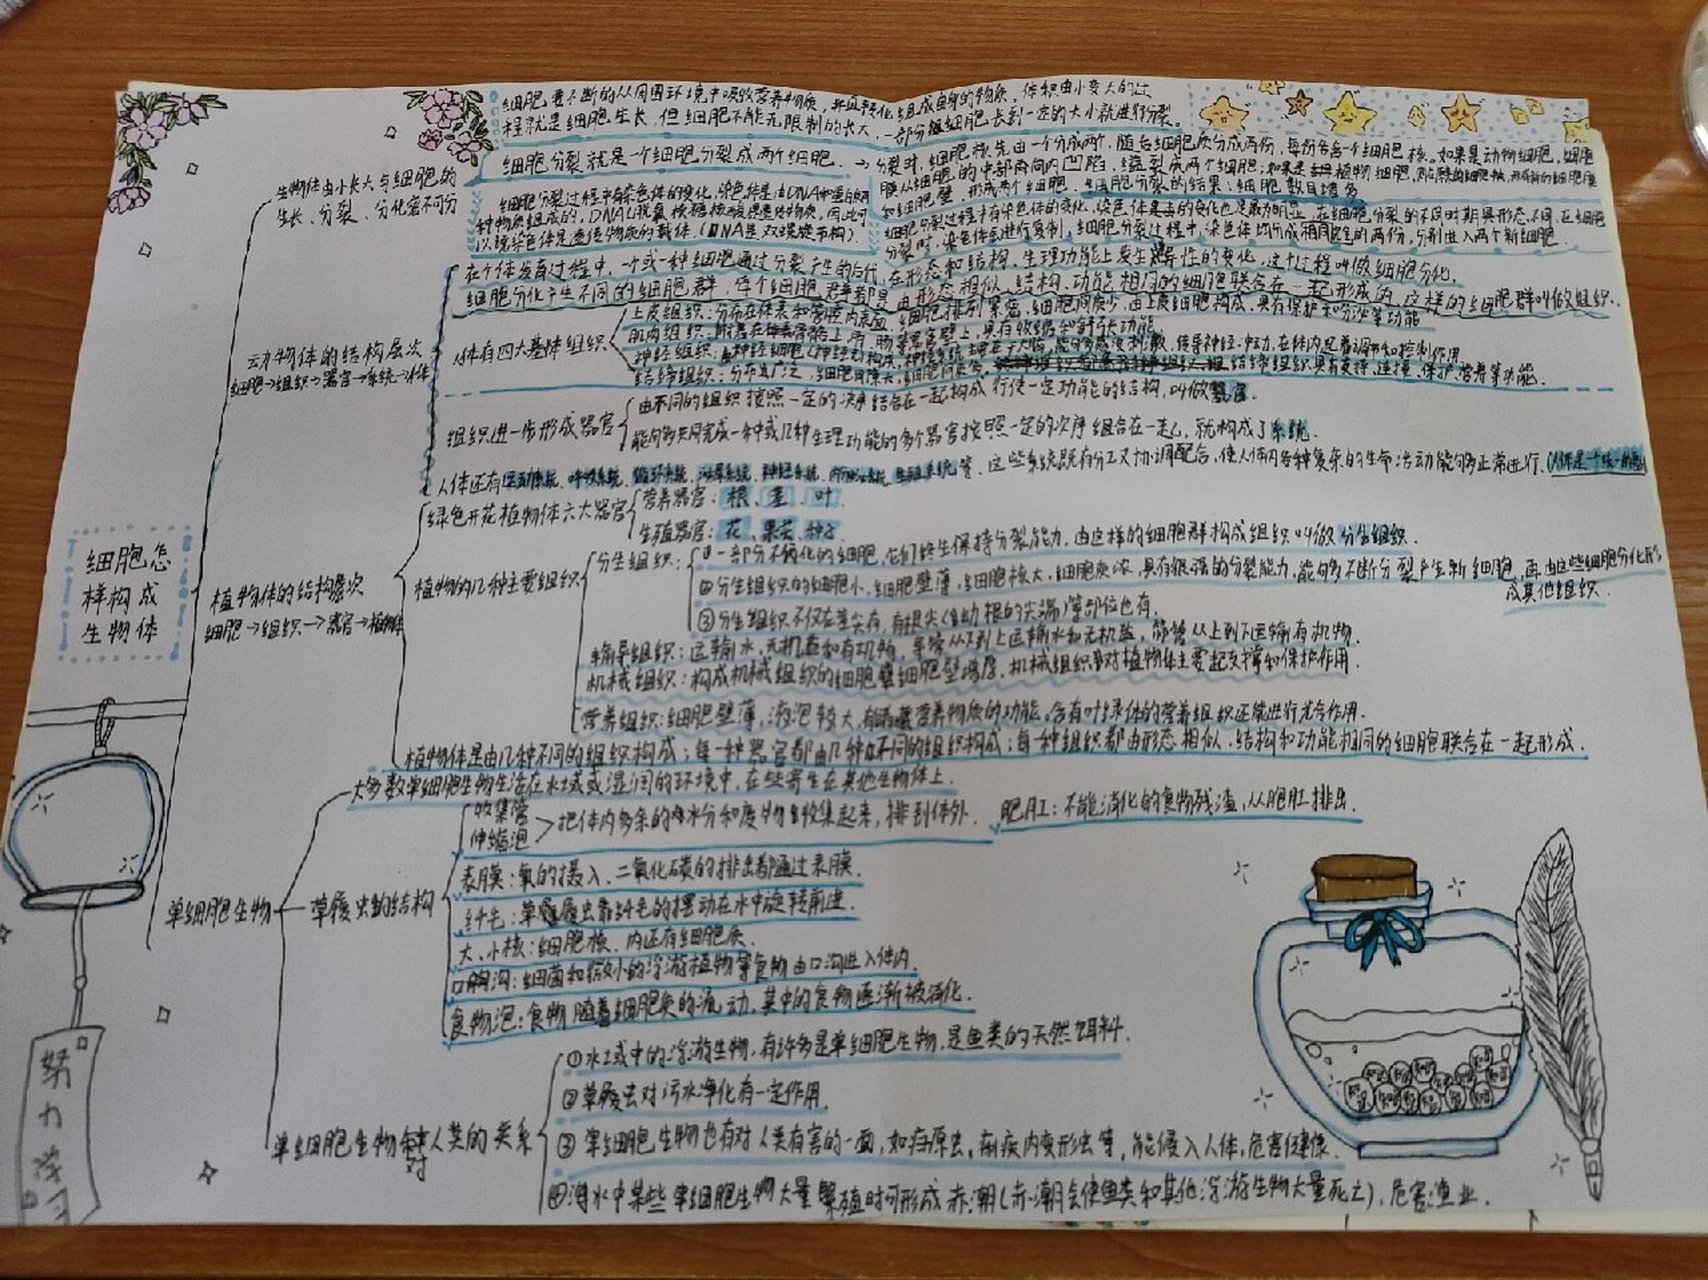 细胞要不断的从周围环境中吸收营养物质,并且转化组成自身的物质,体积由小变大的过
程就是细胞生长,但细胞不能无限制的长大,一部分细胞长到一定的大小就进行分裂。
生物体由小长大与细胞的
生长、分裂、分化密不可分
细胞分裂就是一个细胞分裂成两个细胞.→
分裂时,细胞核先由一个分成两个,随后细胞质分成两份,每份各含一个细胞核.如果是动物细胞,细胞
膜从细胞的中部向内凹陷,缢裂成两个细胞;如果是植物细胞,则在原来的细胞中央,形成新的细胞膜
和细胞壁,形成两个细胞.细胞分裂的结果:细胞数目增多
细胞分裂过程中有染色体的变化,染色体是由DNA和蛋白质两
种物质组成的,DNA(脱氧核糖核酸)是遗传物质,因此可
以说染色体是遗传物质的载体.(DNA是双螺旋结构).
细胞分裂过程中有染色体的变化,染色体的变化也是最为明显,在细胞分裂的不同时期其形态不同,在细胞
分裂时,染色体会进行复制,细胞分裂过程中,染色体均分成相同的两份,分别进入两个新细胞.
动物体的结构层次
细胞→组织→器官→系统→人体
在个体发育过程中,一个或一种细胞通过分裂产生的后代,在形态和结构、生理功能上发生差异性的变化,这个过程叫做细胞分化.
细胞分化产生不同的细胞群,每个细胞群都是由形态相似、结构、功能相同的细胞联合在一起形成的,这样的细胞群叫做组织.
人体有四大基本组织
上皮组织:分布在体表和管腔内表面,细胞排列紧密,细胞间质少,由上皮细胞构成,具有保护和分泌等功能
肌肉组织:附着在骨骼上,胃、肠等器官壁上,具有收缩和舒张功能.
神经组织:由神经细胞(神经元)构成,能够感受刺激,传导神经冲动,在体内起着调节和控制作用
结缔组织:分布广泛,细胞间隙大,细胞间质多,结缔组织具有支持、连接、保护、营养等功能.
组织进一步形成器官
由不同的组织按照一定的次序结合在一起构成行使一定功能的结构,叫做器官.
能够共同完成一种或几种生理功能的多个器官按照一定的次序组合在一起,就构成了系统.
人体还有运动系统、呼吸系统、循环系统、泌尿系统、神经系统、内分泌系统、生殖系统等,这些系统既有分工又协调配合,使人体内各种复杂的生命活动能够正常进行.(人体是一个统一的整体)
细胞怎
样构成
生物体
植物体的结构层次
细胞→组织→器官→植物体
绿色开花植物体六大器官
营养器官:根、茎、叶
生殖器官:花、果实、种子
植物的几种主要组织
分生组织:
①一部分不分化的细胞,它们终生保持分裂能力,由这样的细胞群构成组织叫做分生组织.
②分生组织的细胞小,细胞壁薄,细胞核大,细胞质浓,具有很强的分裂能力,能够不断分裂产生新细胞,再由这些细胞分化形
成其他组织.
③分生组织不仅在茎尖有,在根尖(幼根的尖端)等部位也有.
输导组织:运输水、无机盐和有机物,导管从下到上运输水和无机盐,筛管从上到下运输有机物.
机械组织:构成机械组织的细胞壁增厚,机械组织对植物体主要起支撑和保护作用.
营养组织:细胞壁薄,液泡较大,有储藏营养物质的功能,含有叶绿体的营养组织还能进行光合作用.
植物体是由几种不同的组织构成;每一种器官都由几种不同的组织构成;每一种组织都由形态相似、结构和功能相同的细胞联合在一起形成.
单细胞生物
大多数单细胞生物生活在水域或湿润的环境中,在些寄生在其他生物体上.
草履虫的结构
收集管
伸缩泡
把体内多余的水分和废物收集起来,排到体外.
肥肛:不能消化的食物残渣,从肥肛排出.
表膜:氧的摄入、二氧化碳的排出都通过表膜.
纤毛:草履虫靠纤毛的摆动在水中旋转前进.
大、小核:细胞核、内还有细胞质.
口胸沟:细菌和微小的浮游植物等食物由口沟进入体内.
食物泡:食物随着细胞质的流动,其中的食物逐渐被消化.
单细胞生物对人类的关系
①水域中的浮游生物,有许多是单细胞生物,是鱼类的天然饵料.
②草履虫对污水净化有一定作用.
③单细胞生物也有对人类有害的一面,如疟原虫,痢疾内变形虫等,能侵入人体,危害健康.
④海水中某些单细胞生物大量繁殖时可形成赤潮(赤潮会使鱼类和其他浮游生物大量死亡),危害渔业.
努
力
学
习